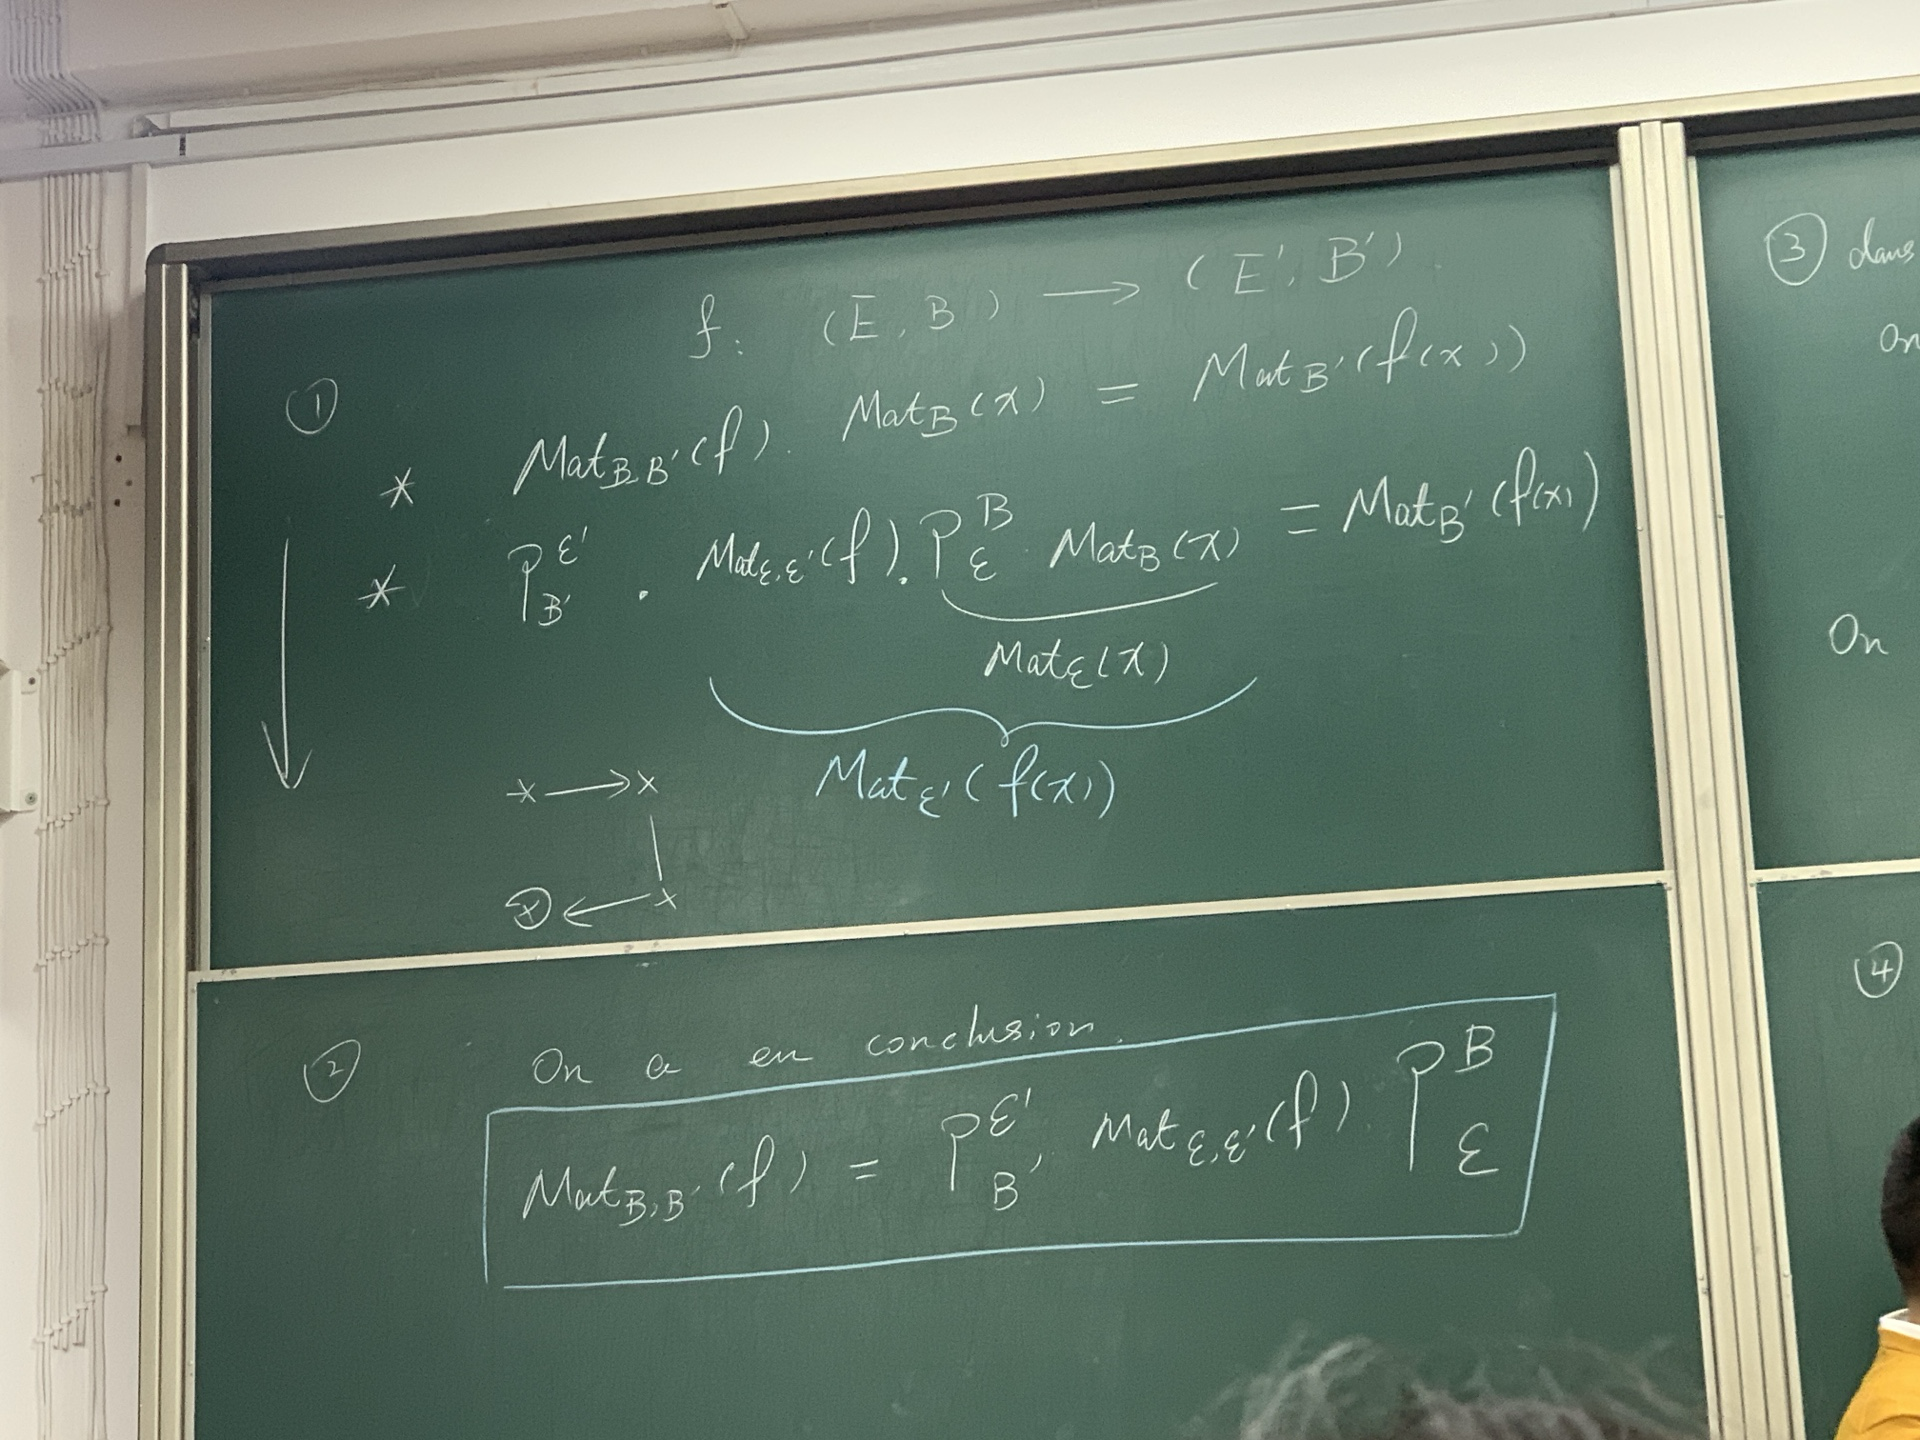 ①
f: (E, B) ⟶ (E', B')
* Mat_{B,B'}(f). Mat_B(x) = Mat_{B'}(f(x))
* P_{B'}^{ℰ'} . Mat_{ℰ,ℰ'}(f). P_ℰ^B . Mat_B(x) = Mat_{B'}(f(x))
Mat_ℰ(x)
Mat_{ℰ'}(f(x))
x ⟶ x
x ⟵ x
②
On a en conclusion.
Mat_{B,B'}(f) = P_{B'}^{ℰ'} . Mat_{ℰ,ℰ'}(f). P_ℰ^B
③ dans
On
On
④